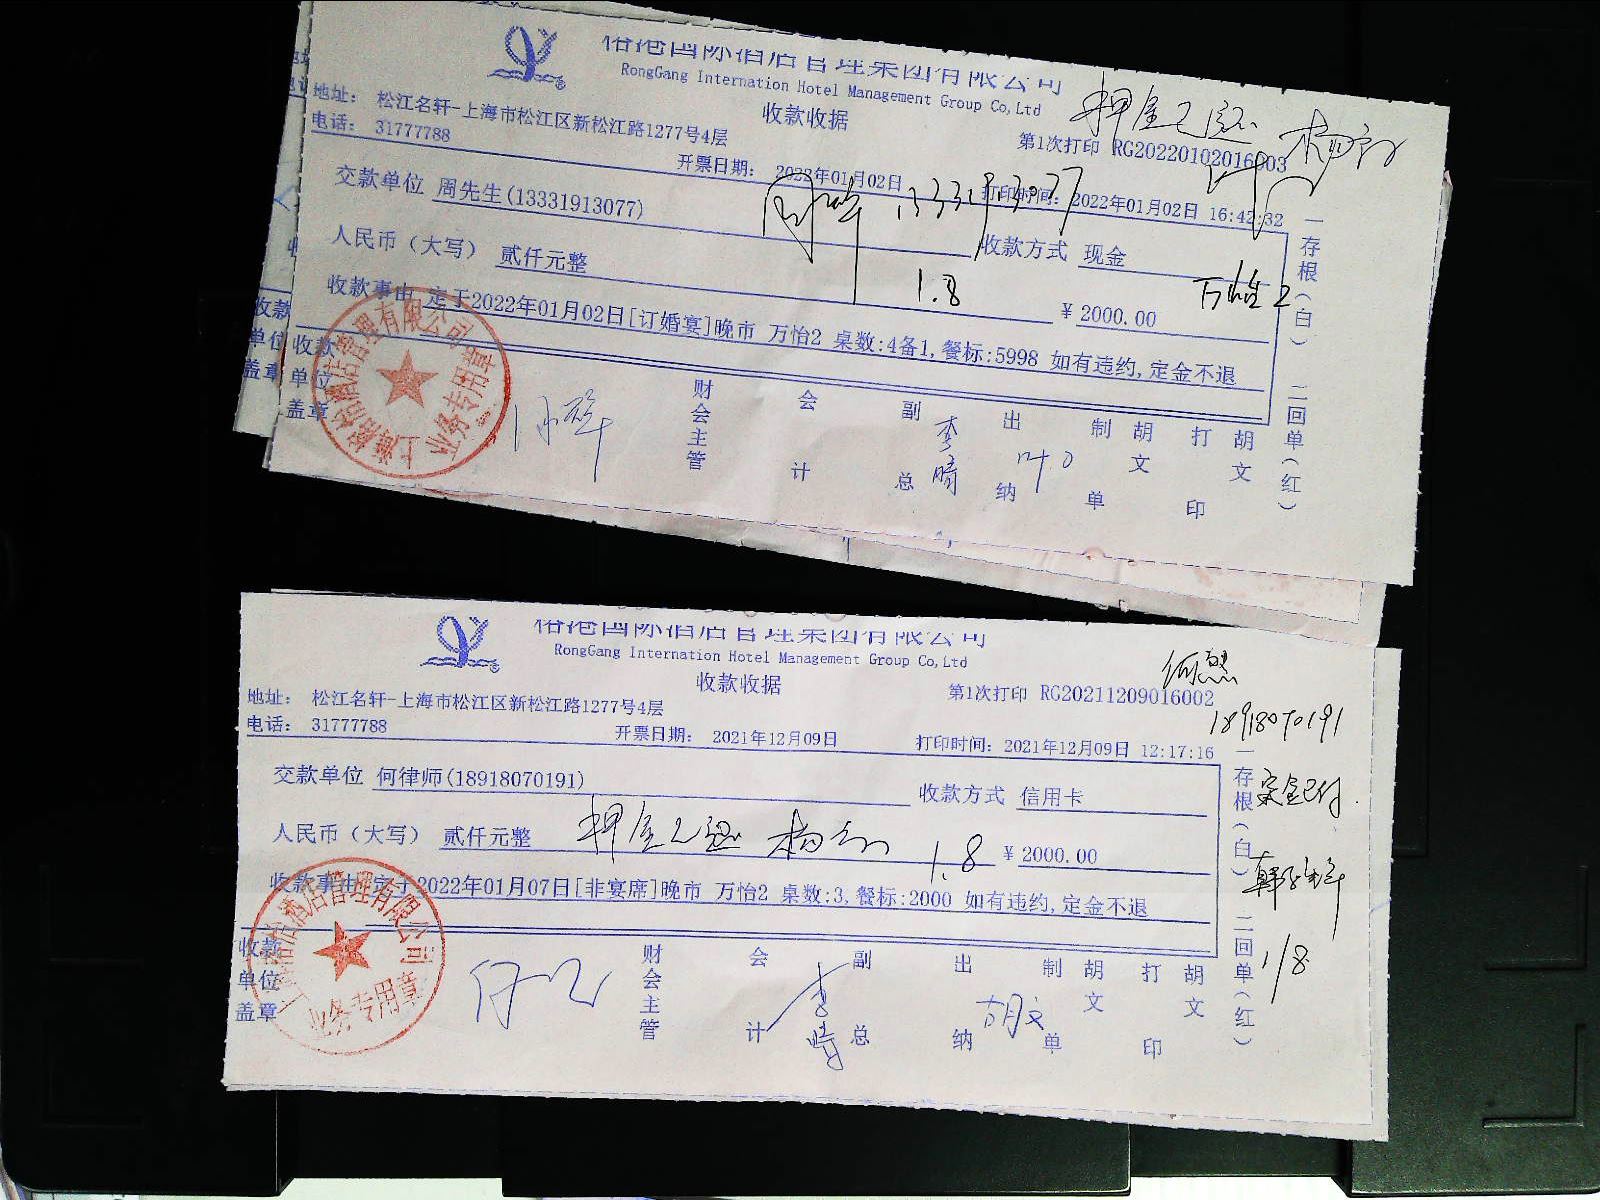 裕港国际酒店管理集团有限公司
RongGang Internation Hotel Management Group Co,Ltd
收款收据
押金已退
地址： 松江名轩-上海市松江区新松江路1277号4层
第1次打印 RG20220102016003
电话： 31777788
开票日期： 2022年01月02日
打印时间： 2022年01月02日 16:42:32
交款单位 周先生(13331913077)
13331913077
收款方式 现金
人民币（大写） 贰仟元整
1.8
¥ 2000.00
万怡2
收款事由 定于2022年01月02日[订婚宴]晚市 万怡2 桌数:4备1,餐标:5998 如有违约,定金不退
一存根(白) 二回单(红)
收款单位盖章
业务专用章
财会主管
会计
副总
李晴
出纳
制单
胡文
打印
胡文
裕港国际酒店管理集团有限公司
RongGang Internation Hotel Management Group Co,Ltd
收款收据
地址： 松江名轩-上海市松江区新松江路1277号4层
第1次打印 RG20211209016002
18918070191
电话： 31777788
开票日期： 2021年12月09日
打印时间： 2021年12月09日 12:17:16
交款单位 何律师(18918070191)
收款方式 信用卡
定金已付
人民币（大写） 贰仟元整
押金已退
1.8
¥ 2000.00
收款事由 定于2022年01月07日[非宴席]晚市 万怡2 桌数:3,餐标:2000 如有违约,定金不退
一存根(白) 二回单(红)
1/8
收款单位盖章
业务专用章
财会主管
会计
李晴
副总
出纳
胡文
制单
胡文
打印
胡文